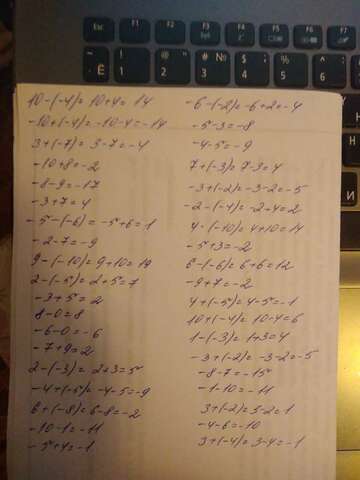 Esc
F1
F2
F3
F4
F5
~ Ё
! 1
@ 2
# № 3
$ 4
% 5
6
10-(-4)=10+4=14
-10+(-4)=-10-4=-14
3+(-7)=3-7=-4
-10+8=-2
-8-9=-17
-3+7=4
-5-(-6)=-5+6=1
-2-7=-9
9-(-10)=9+10=19
2-(-5)=2+5=7
-3+5=2
8-0=8
-6-0=-6
-7+9=2
2-(-3)=2+3=5
-4+(-5)=-4-5=-9
6+(-8)=6-8=-2
-10-1=-11
-5+4=-1
-6-(-2)=-6+2=-4
-5-3=-8
-4-5=-9
7+(-3)=7-3=4
-3+(-2)=-3-2=-5
-2-(-4)=-2+4=2
4-(-10)=4+10=14
-5+3=-2
6-(-6)=6+6=12
-9+7=-2
4+(-5)=4-5=-1
10+(-4)=10-4=6
1-(-3)=1+3=4
-3+(-2)=-3-2=-5
-8-7=-15
-1-10=-11
3+(-2)=3-2=1
-4-6=-10
3+(-4)=3-4=-1